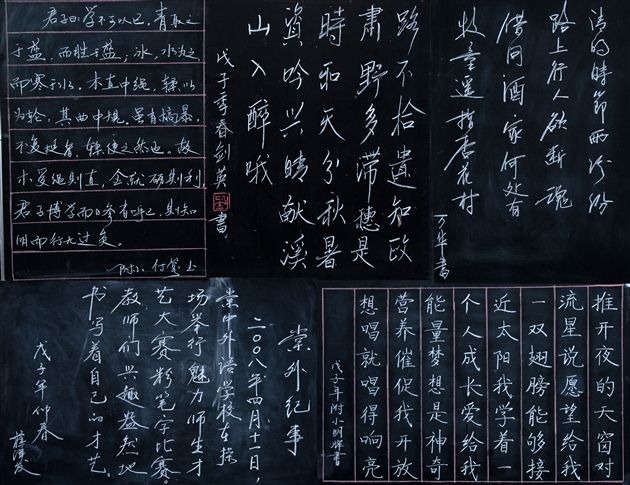 君子曰：学不可以已。青取之
于蓝，而胜于蓝；冰，水为之，
而寒于水。木直中绳，輮以
为轮，其曲中规，虽有槁暴，
不复挺者，輮使之然也。故
木受绳则直，金就砺则利，
君子博学而日参省乎己，则知
明而行无过矣。
附小 付莺 书
路不拾遗知政
肃野多滞穗是
時和天分秋暑
資吟兴晴献溪
山入醉哦
戊子季春剑英書
清明時節雨纷纷
路上行人欲断魂
借问酒家何处有
牧童遥指杏花村
万年書
棠外纪事
二〇〇八年四月十一日，
棠中外语学校在操
场举行魅力师生才
艺大赛粉笔字比赛。
教师们兴趣盎然地
书写着自己的才艺。
戊子年仲春
推开夜的天窗对
流星说愿望给我
一双翅膀能够接
近太阳我学着一
个人成长爱给我
能量梦想是神奇
营养催促我开放
想唱就唱得响亮
戊子年附小明辉書